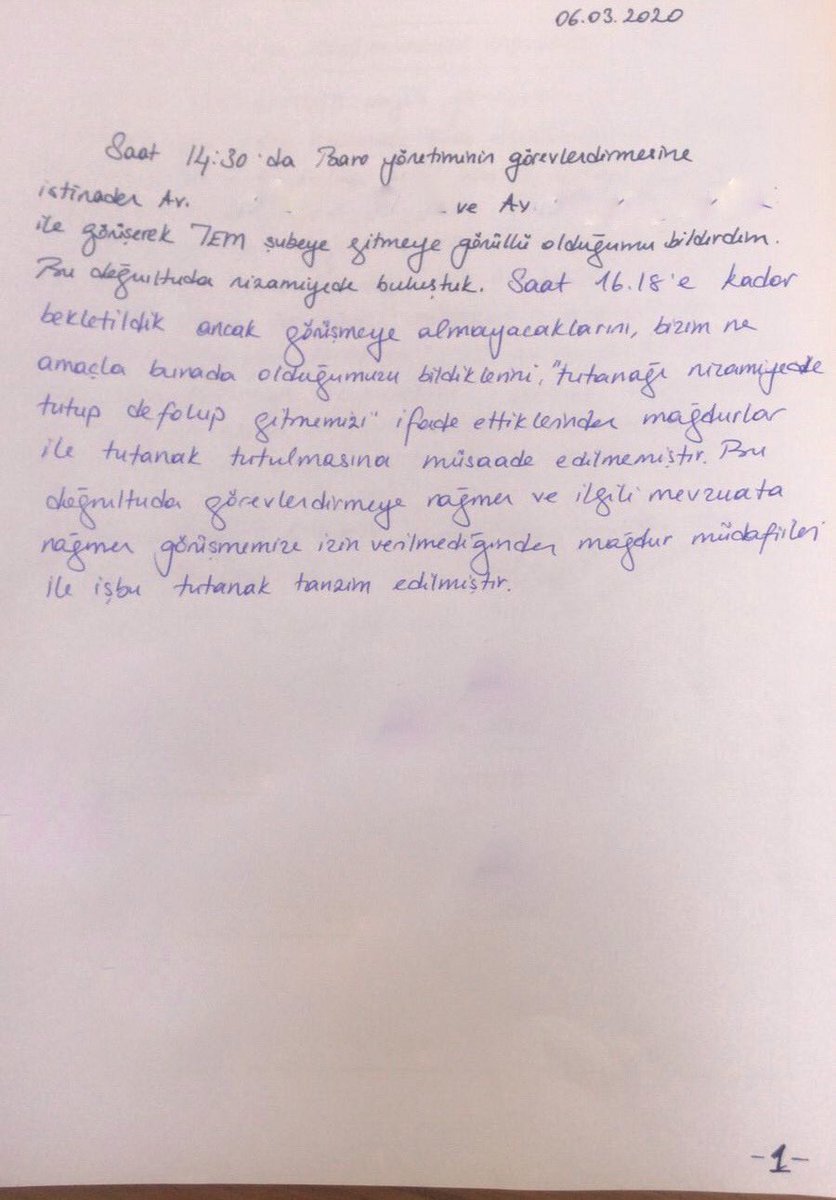 06.03.2020
Saat 14:30'da Baro yönetiminin görevlendirmesine
istinaden Av.
ve Av
ile görüşerek TEM şubeye gitmeye gönüllü olduğumu bildirdim.
Bu doğrultuda nizamiyede buluştuk. Saat 16.18'e kadar
bekletildik ancak görüşmeye almayacaklarını, bizim ne
amaçla burada olduğumuzu bildiklerini, "tutanağı nizamiyede
tutup defolup gitmemizi" ifade ettiklerinden mağdurlar
ile tutanak tutulmasına müsaade edilmemiştir. Bu
doğrultuda görevlendirmeye rağmen ve ilgili mevzuata
rağmen görüşmemize izin verilmediğinden mağdur müdafiileri
ile işbu tutanak tanzim edilmiştir.
-1-